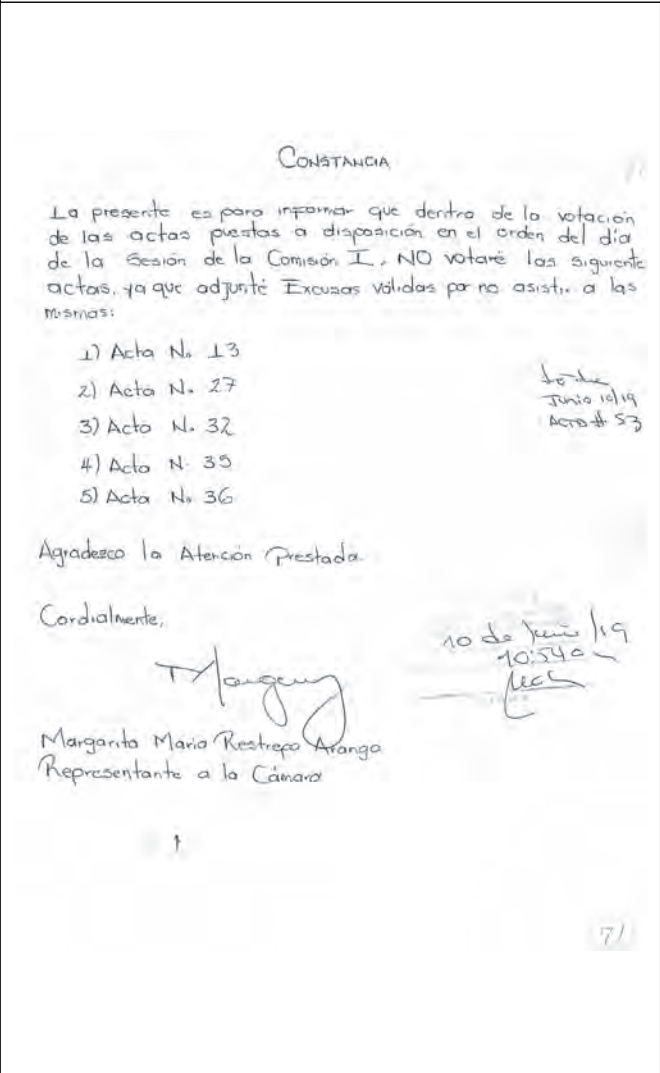 CONSTANCIA
La presente es para informar que dentro de la votación
de las actas puestas a disposición en el orden del día
de la Sesión de la Comisión I, NO votaré las siguiente
actas, ya que adjunté Excusas válidas por no asistir a las
mismas:
1) Acta No 13
2) Acta N. 27
3) Acta N. 32
4) Acta N. 35
5) Acta No 36
Junio 10/19
Acta # 53
Agradezco la Atención Prestada.
Cordialmente,
10 de Junio /19
10:54 a
Margarita Maria Restrepo Arango
Representante a la Cámara
71